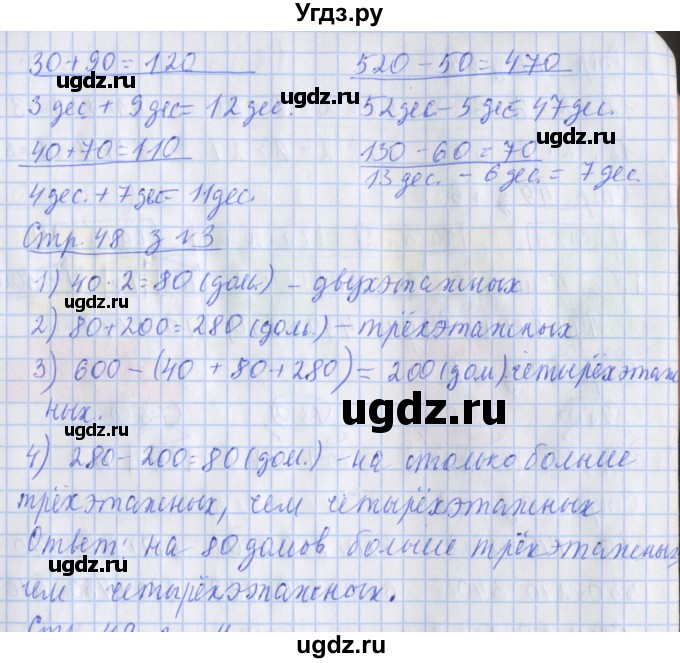 Угдз.ру
30+90=120
520-50=470
3 дес + 9 дес = 12 дес.
52 дес - 5 дес = 47 дес.
40+70=110
130-60=70
4 дес. + 7 дес = 11 дес.
13 дес. - 6 дес. = 7 дес.
Стр. 48 з №3
1) 40 · 2 = 80 (дом.) - двухэтажных
2) 80+200=280 (дом.) - трёхэтажных
3) 600 - (40 + 80 + 280) = 200 (дом) четырёхэтаж
ных.
4) 280 - 200 = 80 (дом.) - на столько больше
трёхэтажных, чем четырёхэтажных
Ответ: на 80 домов больше трёхэтажных,
чем четырёхэтажных.
ugdz.ru
ugdz.ru
ugdz.ru
ugdz.ru
ugdz.ru
ugdz.ru
ugdz.ru
ugdz.ru
ugdz.ru
ugdz.ru